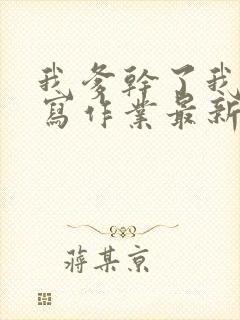 我爹幹了我
寫作業最新
蔣某京